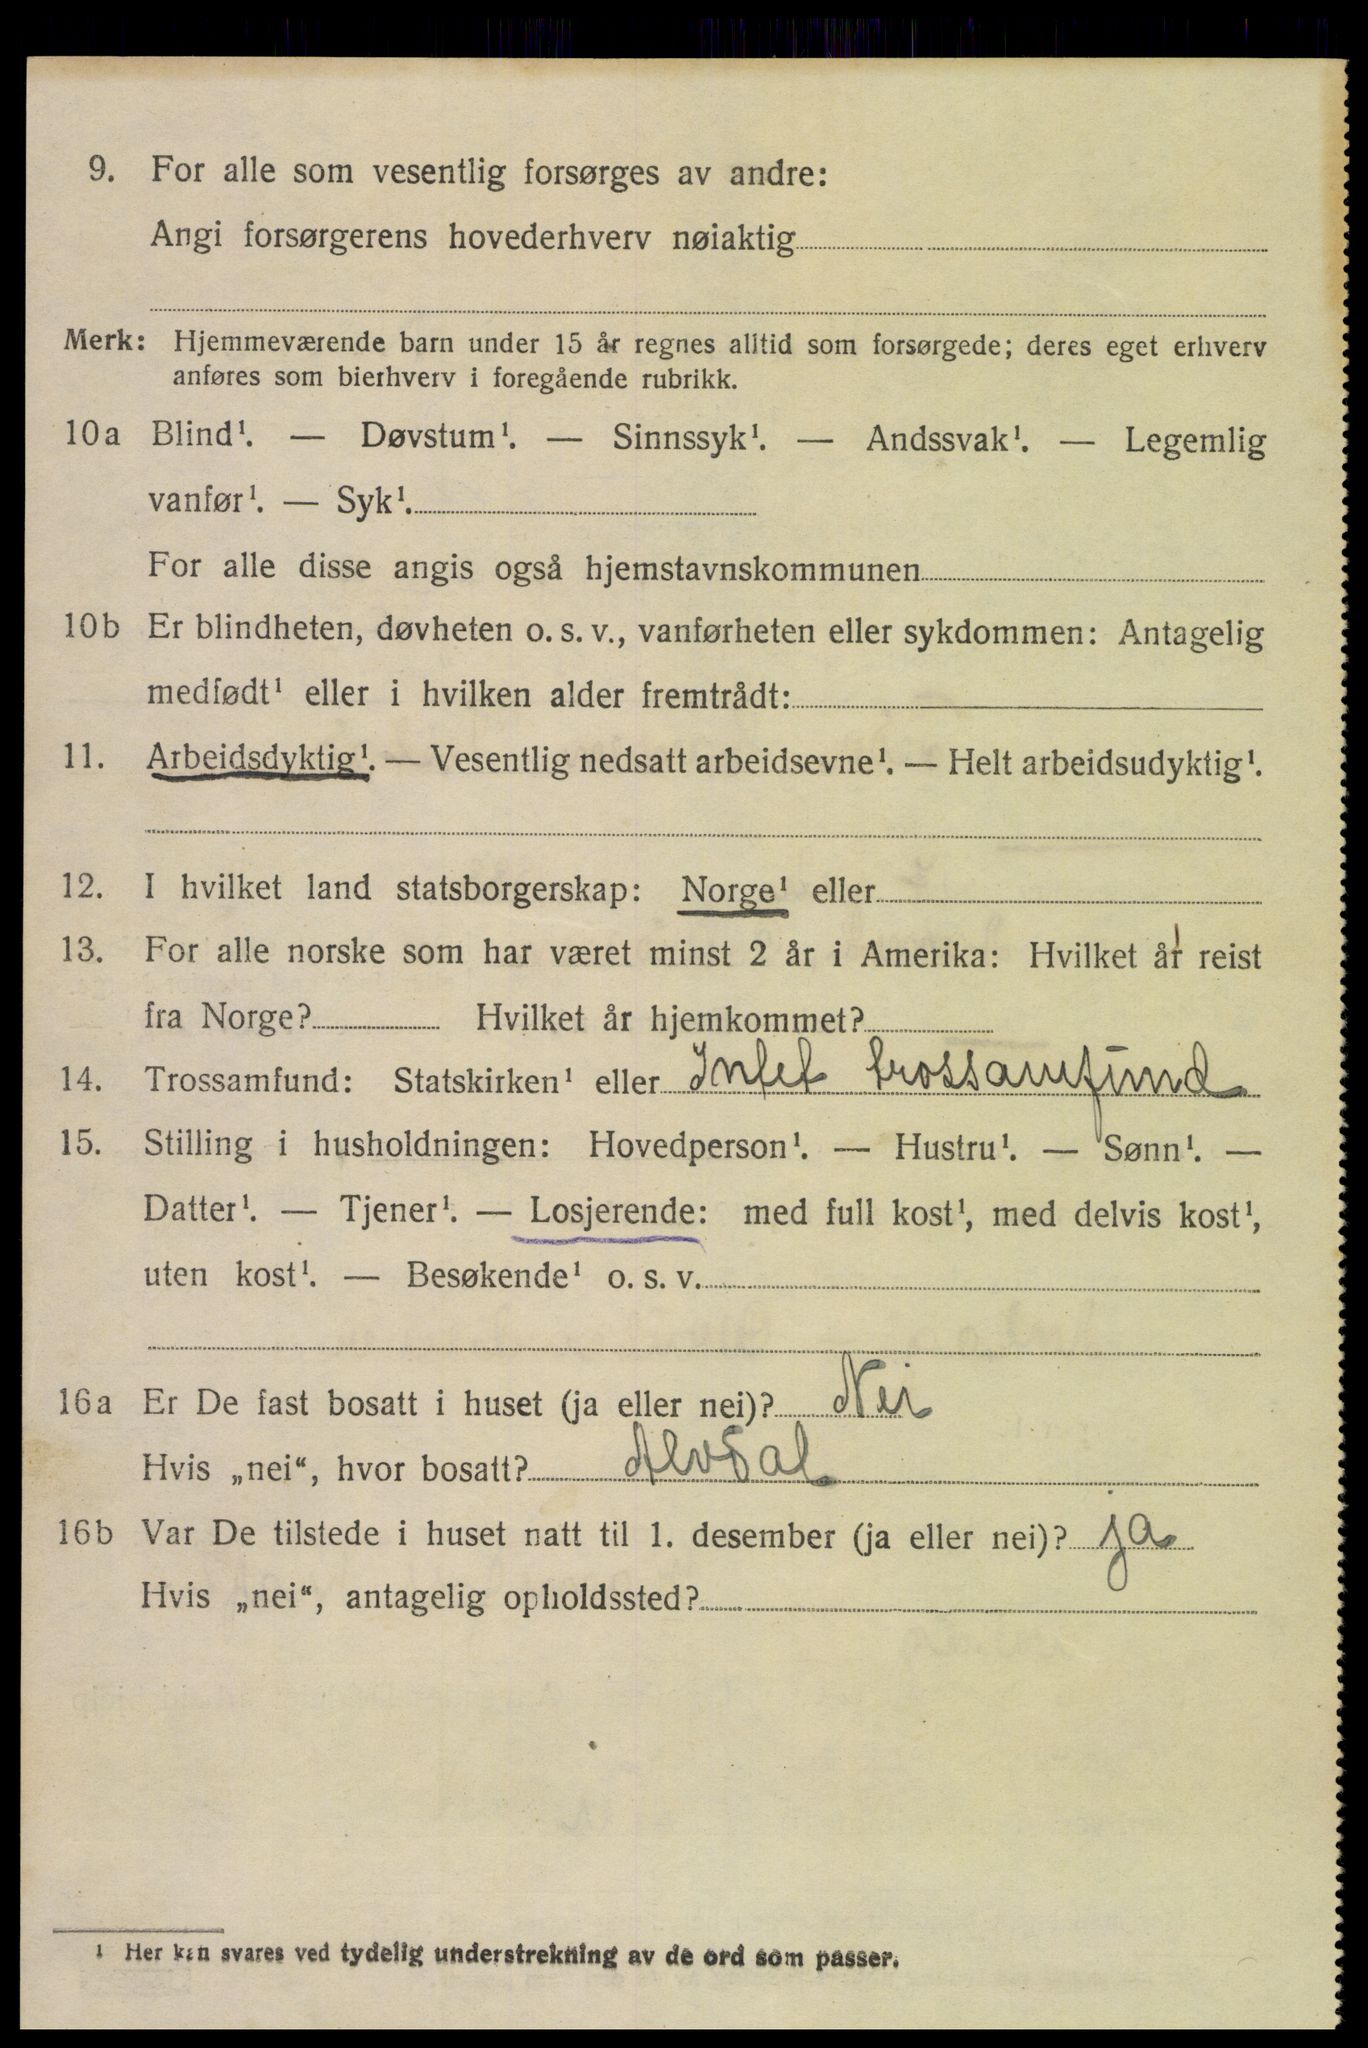 9. For alle som vesentlig forsørges av andre:
Angi forsørgerens hovederhverv nøiaktig
Merk: Hjemmeværende barn under 15 år regnes alltid som forsørgede; deres eget erhverv
anføres som bierhverv i foregående rubrikk.
10a Blind¹. — Døvstum¹. — Sinnssyk¹. — Andssvak¹. — Legemlig
vanfør¹. — Syk¹.
For alle disse angis også hjemstavnskommunen
10b Er blindheten, døvheten o. s. v., vanførheten eller sykdommen: Antagelig
medfødt¹ eller i hvilken alder fremtrådt:
11. Arbeidsdyktig¹. — Vesentlig nedsatt arbeidsevne¹. — Helt arbeidsudyktig¹.
12. I hvilket land statsborgerskap: Norge¹ eller
13. For alle norske som har været minst 2 år i Amerika: Hvilket år reist
fra Norge? Hvilket år hjemkommet?
14. Trossamfund: Statskirken¹ eller Intet trossamfund
15. Stilling i husholdningen: Hovedperson¹. — Hustru¹. — Sønn¹. —
Datter¹. — Tjener¹. — Losjerende: med full kost¹, med delvis kost¹,
uten kost¹. — Besøkende¹ o. s. v.
16a Er De fast bosatt i huset (ja eller nei)? Nei
Hvis „nei“, hvor bosatt? Alvdal
16b Var De tilstede i huset natt til 1. desember (ja eller nei)? ja
Hvis „nei“, antagelig opholdssted?
1 Her kan svares ved tydelig understrekning av de ord som passer.